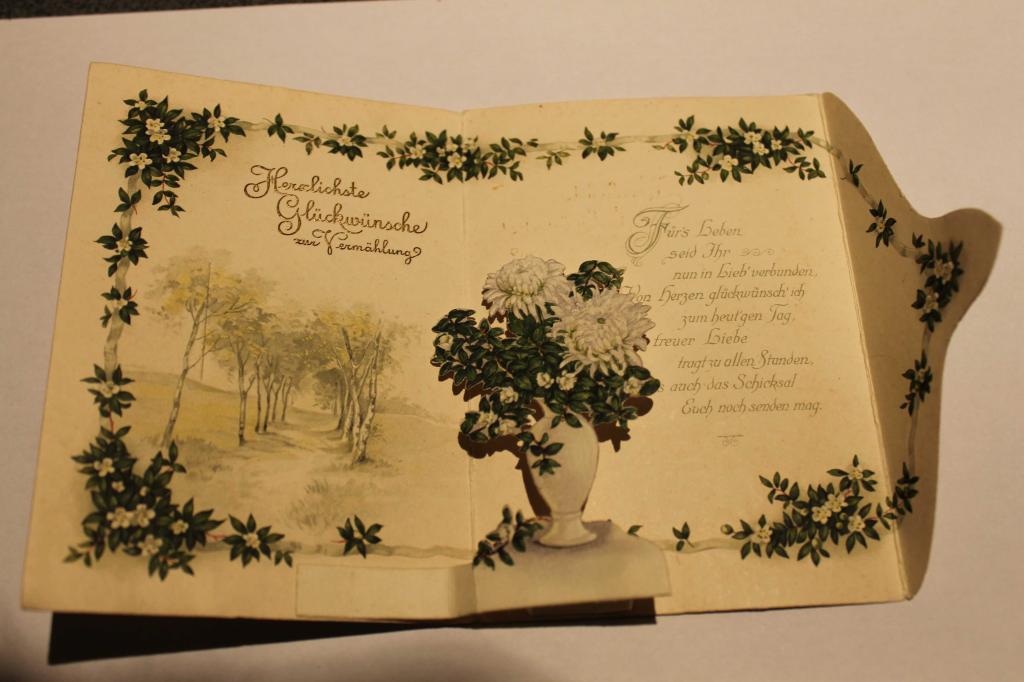 Herzlichste
Glückwünsche
zur Vermählung
Für's Leben
seid Ihr
nun in Lieb' verbunden,
Von Herzen glückwünsch' ich
zum heut'gen Tag,
treuer Liebe
tragt zu allen Stunden,
auch das Schicksal
Euch noch senden mag.